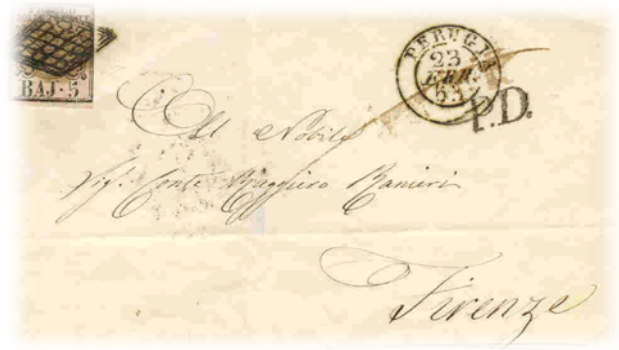 BAJ. 5.
PERUGIA
23
FEB.
53
P.D.
All Nobile
Sig.r Conte Ruggiero Ranieri
Firenze